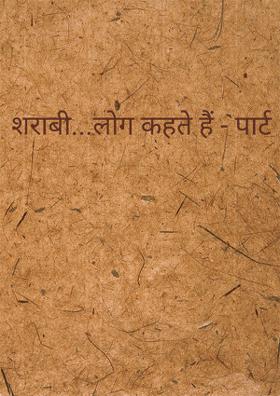 शराबी...लोग कहते हैं - पार्ट